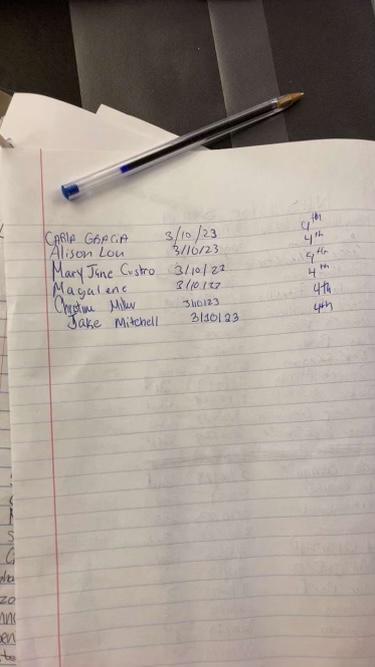 CARLA GARCIA 3/10/23 4th
Alison Lou 3/10/23 4th
Mary Jane Castro 3/10/22 4th
Magalene 3/10/22 4th
Christine Miler 3/10/23 4th
Jake Mitchell 3/10/23 4th